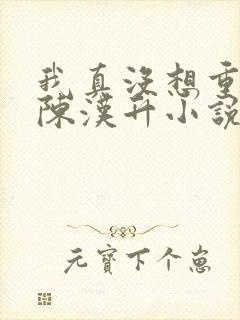 我真没想重
陈漢升小說
元寶下个崽